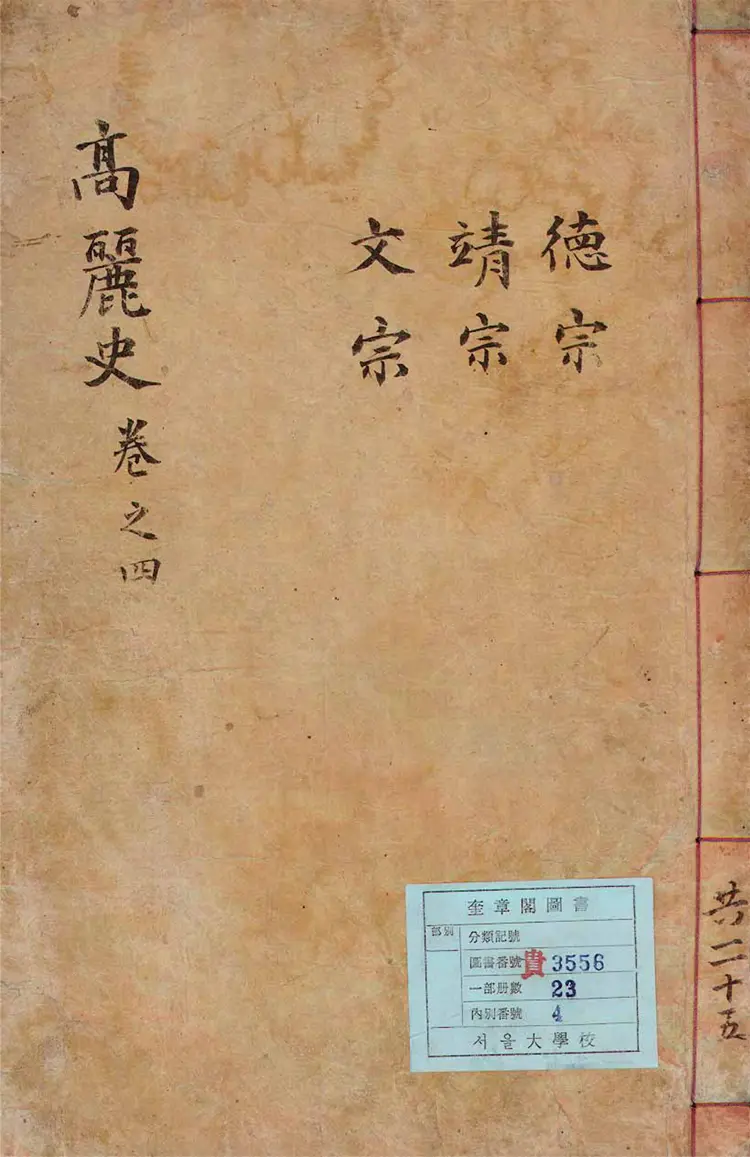 德宗
靖宗
文宗
高麗史 卷之四
共二十五
奎章閣圖書
部別
分類記號
圖書番號 貴 3556
一部册數 23
內別番號 4
서울大學校